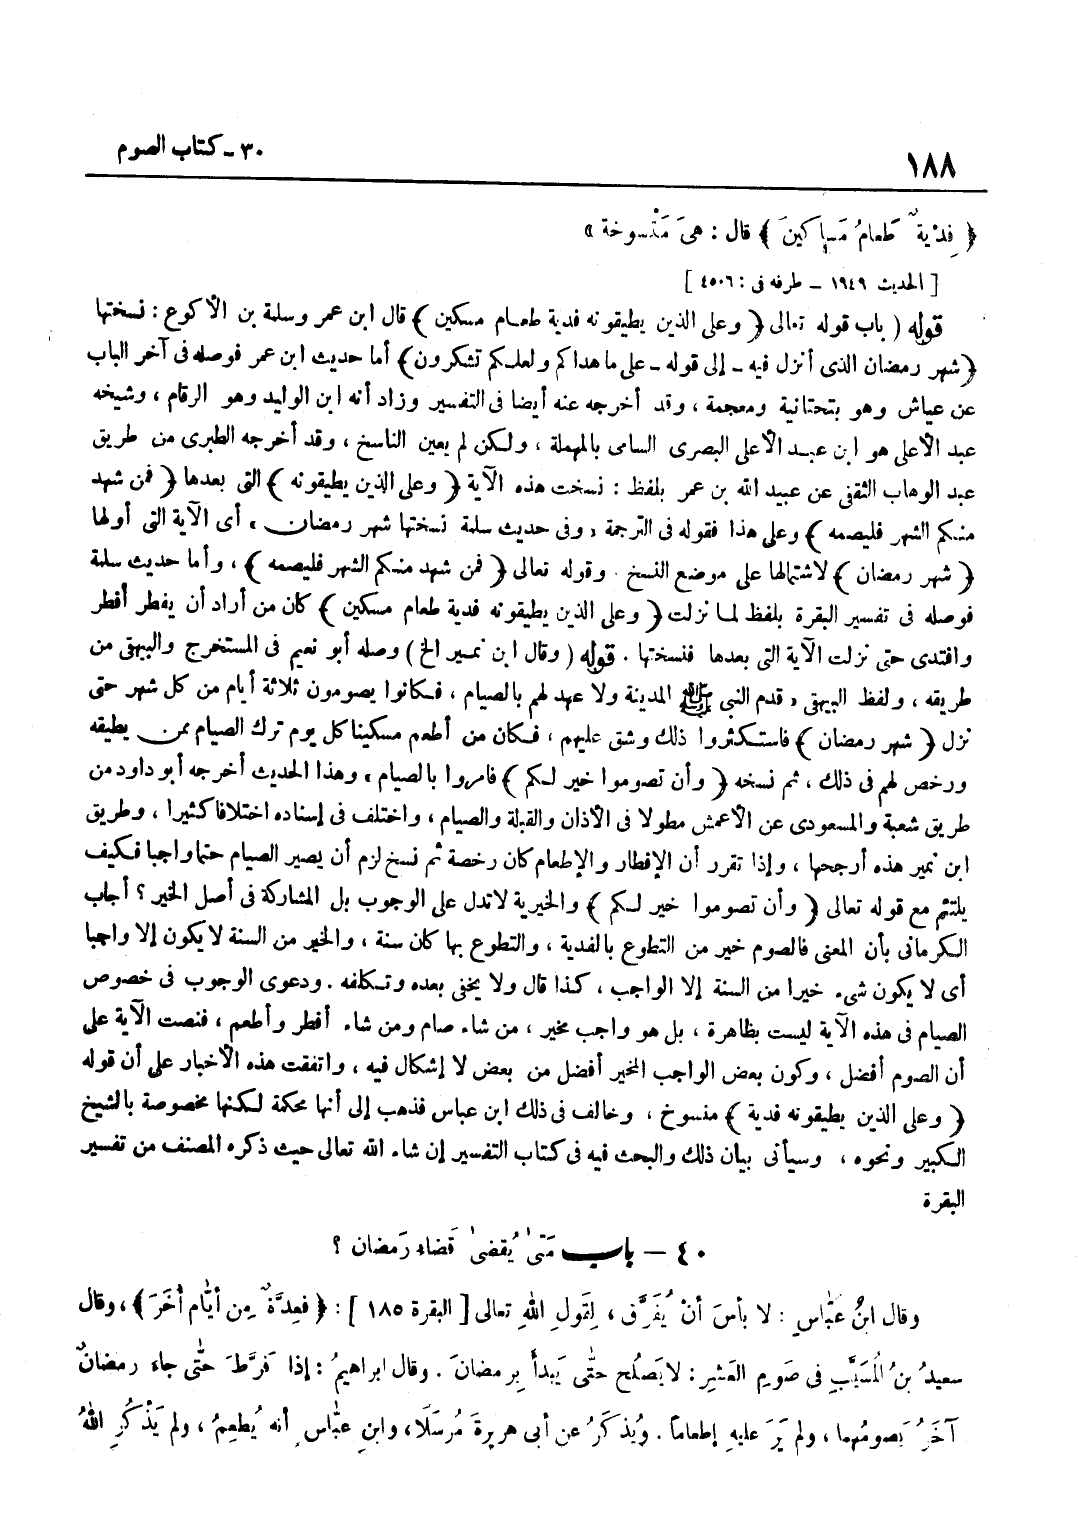 ١٨٨
٣٠ - كتاب الصوم
﴿ فِدْيةٌ طَعامُ مَساكينَ ﴾ قال : هىَ مَنْسوخة »
[ الحديث ١٩٤٩ - طرفه فى : ٤٥٠٦ ]
قوله ( باب قوله تعالى ﴿ وعلى الذين يطيقونه فدية طعام مسكين ﴾ قال ابن عمر وسلمة بن الأكوع : نسختها
﴿ شهر رمضان الذى أنزل فيه - إلى قوله - على ما هداكم ولعلكم تشكرون ﴾ أما حديث ابن عمر فوصله فى آخر الباب
عن عياش وهو بتحتانية ومعجمة ، وقد أخرجه عنه أيضا فى التفسير وزاد أنه ابن الوليد وهو الرقام ، وشيخه
عبد الأعلى هو ابن عبد الأعلى البصرى السامى بالمهملة ، ولكن لم يعين الناسخ ، وقد أخرجه الطبرى من طريق
عبد الوهاب الثقفى عن عبيد الله بن عمر بلفظ : نسخت هذه الآية ﴿ وعلى الذين يطيقونه ﴾ التى بعدها ﴿ فمن شهد
منكم الشهر فليصمه ﴾ وعلى هذا فقوله فى الترجمة « وفى حديث سلمة نسختها شهر رمضان » أى الآية التى أولها
﴿ شهر رمضان ﴾ لاشتمالها على موضع النسخ . وقوله تعالى ﴿ فمن شهد منكم الشهر فليصمه ﴾ ، وأما حديث سلمة
فوصله فى تفسير البقرة بلفظ لما نزلت ﴿ وعلى الذين يطيقونه فدية طعام مسكين ﴾ كان من أراد أن يفطر أفطر
وافتدى حتى نزلت الآية التى بعدها فنسختها . قوله ( وقال ابن نمير الخ ) وصله أبو نعيم فى المستخرج والبيهقى من
طريقه ، ولفظ البيهقى « قدم النبى ﷺ المدينة ولا عهد لهم بالصيام ، فكانوا يصومون ثلاثة أيام من كل شهر حتى
نزل ﴿ شهر رمضان ﴾ فاستكثروا ذلك وشق عليهم ، فكان من أطعم مسكينا كل يوم ترك الصيام ممن يطيقه
ورخص لهم فى ذلك ، ثم نسخه ﴿ وأن تصوموا خير لكم ﴾ فامروا بالصيام » وهذا الحديث أخرجه أبو داود من
طريق شعبة والمسعودى عن الأعمش مطولا فى الأذان والقبلة والصيام ، واختلف فى إسناده اختلافا كثيرا ، وطريق
ابن نمير هذه أرجحها ، وإذا تقرر أن الإفطار والإطعام كان رخصة ثم نسخ لزم أن يصير الصيام حتما واجبا فكيف
يلتئم مع قوله تعالى ﴿ وأن تصوموا خير لكم ﴾ والخيرية لا تدل على الوجوب بل المشاركة فى أصل الخير ؟ أجاب
الكرمانى بأن المعنى فالصوم خير من التطوع بالفدية ، والتطوع بها كان سنة ، والخير من السنة لا يكون إلا واجبا
أى لا يكون شىء خيرا من السنة إلا الواجب ، كذا قال ولا يخفى بعده وتكلفه . ودعوى الوجوب فى خصوص
الصيام فى هذه الآية ليست بظاهرة ، بل هو واجب مخير ، من شاء صام ومن شاء أفطر وأطعم ، فنصت الآية على
أن الصوم أفضل ، وكون بعض الواجب المخير أفضل من بعض لا إشكال فيه ، واتفقت هذه الأخبار على أن قوله
﴿ وعلى الذين يطيقونه فدية ﴾ منسوخ ، وخالف فى ذلك ابن عباس فذهب إلى أنها محكمة لكنها مخصوصة بالشيخ
الكبير ونحوه ، وسيأتى بيان ذلك والبحث فيه فى كتاب التفسير إن شاء الله تعالى حيث ذكره المصنف من تفسير
البقرة
٤٠ - باب مَتىٰ يُقضىٰ قَضاء رَمضان ؟
وقال ابنُ عبّاسٍ : لا بأسَ أنْ يُفَرَّق ، لِقَولِ اللهِ تعالى [ البقرة ١٨٥ ] : ﴿ فعِدَّةٌ مِن أيّامٍ أُخَرَ ﴾ ، وقال
سعيدُ بنُ المُسَيَّبِ فى صَومِ العَشرِ : لا يَصلُح حتّى يَبدأَ بِرمضانَ . وقال ابراهيمُ : إذا فَرَّطَ حتّى جاء رمضانٌ
آخَرُ يَصومُهما ، ولم يَرَ عليهِ إطعاماً . ويُذكَرُ عن أبى هريرةَ مُرسَلًا ، وابنِ عبّاسٍ أنه يُطعِمُ ، ولم يَذْكُرِ اللهُ